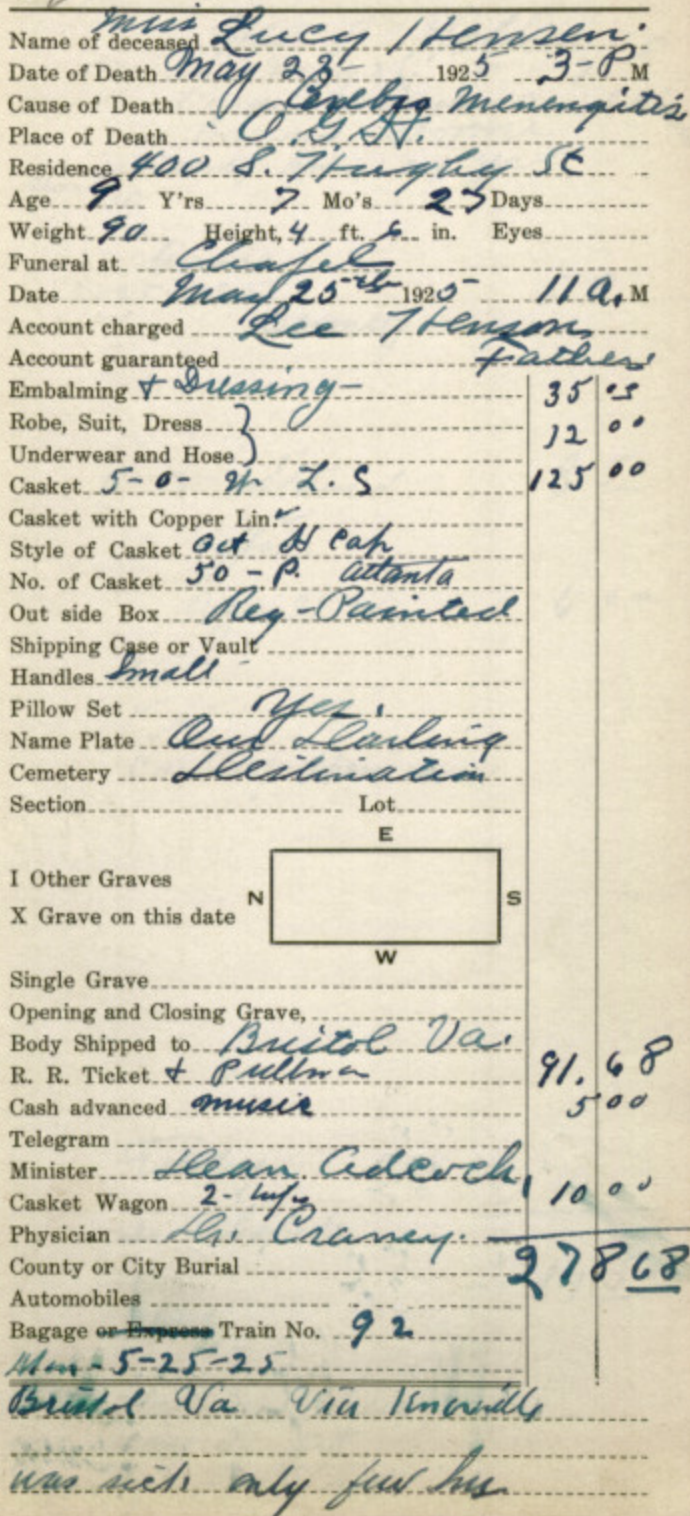 Miss
Name of deceased Lucy Hensen.
Date of Death May 23- 1925 3-P M
Cause of Death Cerebro Menengitis
Place of Death O.G.H.
Residence 400 S. Hughey St
Age 9 Y'rs 7 Mo's 27 Days
Weight 90 Height, 4 ft. 6 in. Eyes
Funeral at Chapel
Date May 25th 1925 11 A. M
Account charged Lee Henson
Account guaranteed Father
Embalming + Dressing- 35 00
Robe, Suit, Dress
12 00
Underwear and Hose
Casket 5-0- W. L. S 125 00
Casket with Copper Lin.
Style of Casket Oct H Cap
No. of Casket 50 - P. Atlanta
Out side Box Reg-Painted
Shipping Case or Vault
Handles Small
Pillow Set Yes.
Name Plate Our Darling
Cemetery Destination
Section Lot
E
I Other Graves
N S
X Grave on this date
W
Single Grave
Opening and Closing Grave,
Body Shipped to Bristol Va.
R. R. Ticket + Pullman 91.68
Cash advanced music 5 00
Telegram
Minister Dean Adcock,
Casket Wagon 2- 10 00
Physician Dr. Craney.
County or City Burial 278 68
Automobiles
Bagage or Express Train No. 92
Mon - 5-25-25
Bristol Va Via Knoxville
was sick only few hrs